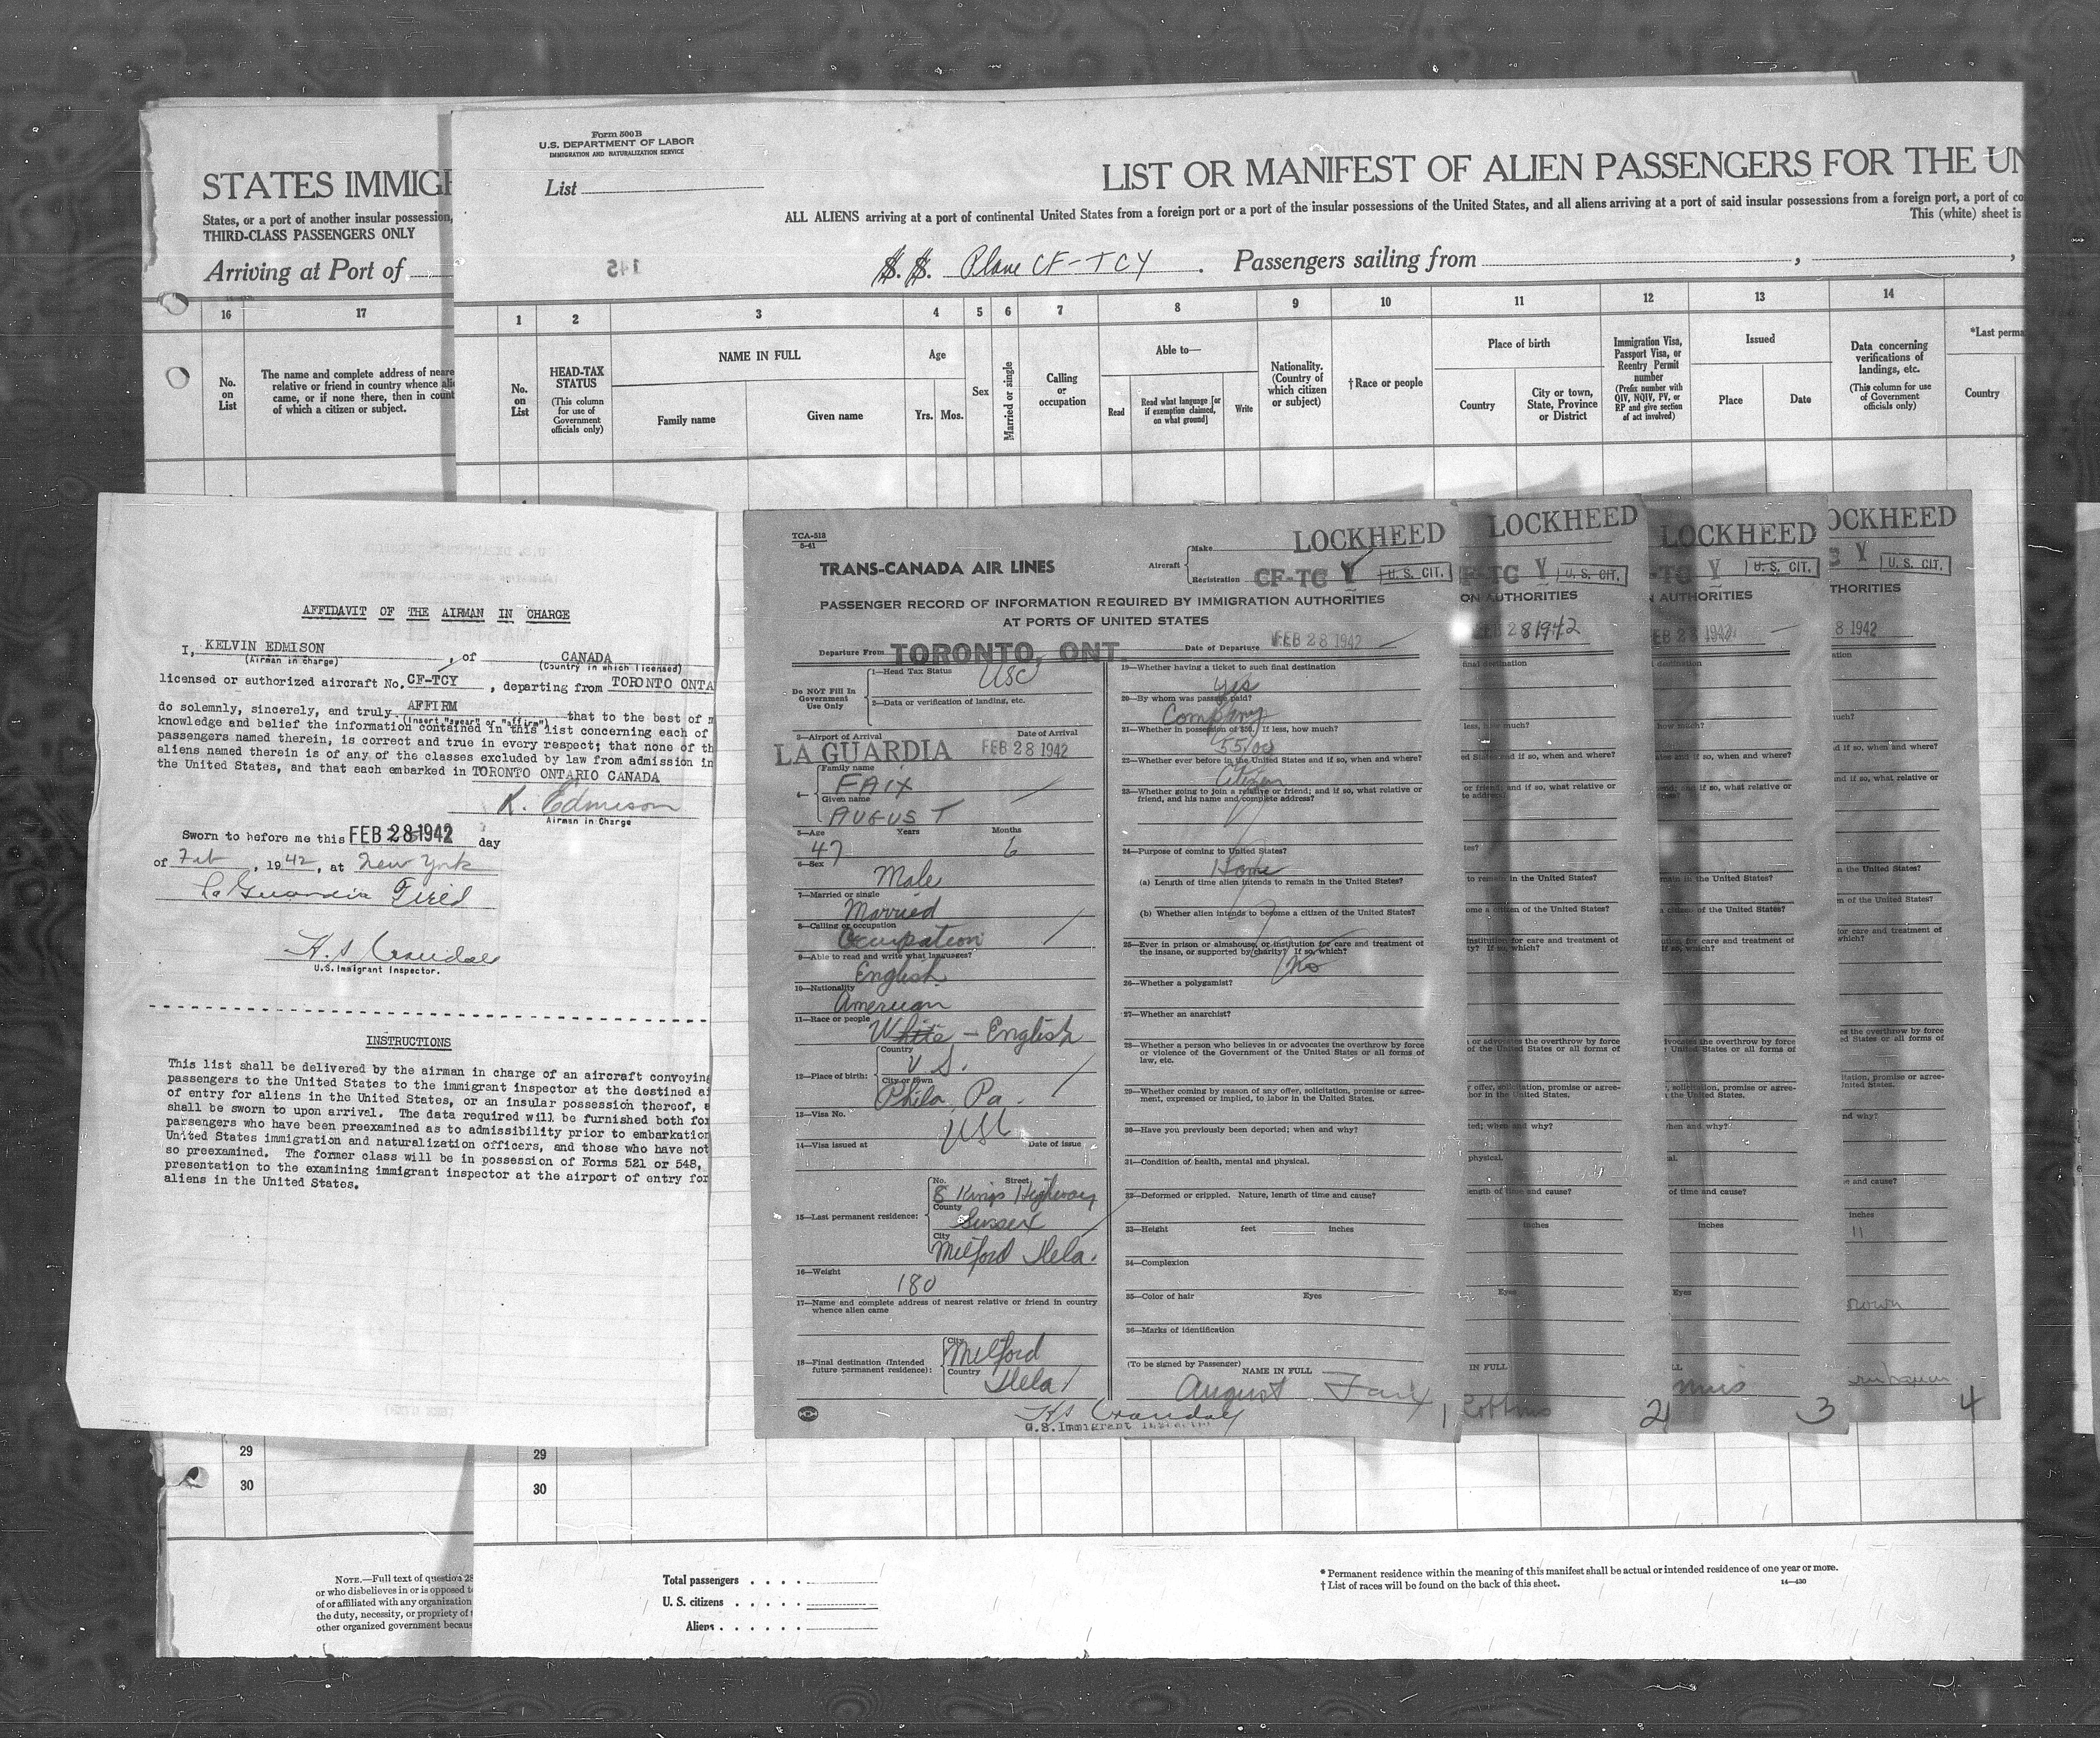 Form 500B
U.S. DEPARTMENT OF LABOR
IMMIGRATION AND NATURALIZATION SERVICE
List
LIST OR MANIFEST OF ALIEN PASSENGERS FOR THE UN
ALL ALIENS arriving at a port of continental United States from a foreign port or a port of the insular possessions of the United States, and all aliens arriving at a port of said insular possessions from a foreign port, a port of co
This (white) sheet is
S. S. Plane CF-TCY . Passengers sailing from , ,
STATES IMMIGR
States, or a port of another insular possession,
THIRD-CLASS PASSENGERS ONLY
Arriving at Port of
145
16 17
No. on List
The name and complete address of neare
relative or friend in country whence alie
came, or if none there, then in count
of which a citizen or subject.
1 2 3 4 5 6 7 8 9 10 11 12 13 14
No. on List
HEAD-TAX STATUS
(This column for use of Government officials only)
NAME IN FULL
Family name Given name
Age
Yrs. Mos.
Sex
Married or single
Calling or occupation
Able to—
Read
Read what language [or if exemption claimed, on what ground]
Write
Nationality. (Country of which citizen or subject)
†Race or people
Place of birth
Country
City or town, State, Province or District
Immigration Visa, Passport Visa, or Reentry Permit number
(Prefix number with QIV, NQIV, PV, or RP and give section of act involved)
Issued
Place Date
Data concerning verifications of landings, etc.
(This column for use of Government officials only)
*Last perma
Country
AFFIDAVIT OF THE AIRMAN IN CHARGE
I, KELVIN EDMISON , of CANADA
(Airman in charge) (Country in which licensed)
licensed or authorized aircraft No. CF-TCY , departing from TORONTO ONTA
do solemnly, sincerely, and truly AFFIRM that to the best of m
(insert "swear" or "affirm")
knowledge and belief the information contained in this list concerning each of
passengers named therein, is correct and true in every respect; that none of th
aliens named therein is of any of the classes excluded by law from admission in
the United States, and that each embarked in TORONTO ONTARIO CANADA
K. Edmison
Airman in Charge
Sworn to before me this FEB 28 1942 day
of Feb , 1942, at New York
La Guardia Field
H. S. Crandall
U.S.Immigrant Inspector.
INSTRUCTIONS
This list shall be delivered by the airman in charge of an aircraft conveying
passengers to the United States to the immigrant inspector at the destined ai
of entry for aliens in the United States, or an insular possession thereof, a
shall be sworn to upon arrival. The data required will be furnished both for
passengers who have been preexamined as to admissibility prior to embarkation
United States immigration and naturalization officers, and those who have not
so preexamined. The former class will be in possession of Forms 521 or 548,
presentation to the examining immigrant inspector at the airport of entry for
aliens in the United States.
TCA-518
5-41
TRANS-CANADA AIR LINES
Aircraft
Make LOCKHEED
Registration CF-TC Y
U. S. CIT.
PASSENGER RECORD OF INFORMATION REQUIRED BY IMMIGRATION AUTHORITIES
AT PORTS OF UNITED STATES
Departure From TORONTO, ONT. Date of Departure FEB 28 1942
Do NOT Fill In
Government
Use Only
1—Head Tax Status USC
2—Data or verification of landing, etc.
3—Airport of Arrival Date of Arrival
LA GUARDIA FEB 28 1942
4—
Family name
FAIX
Given name
AUGUST
5—Age Years Months
47 6
6—Sex
Male
7—Married or single
Married
8—Calling or occupation
Occupation
9—Able to read and write what languages?
English
10—Nationality
American
11—Race or people
White – English
12—Place of birth:
Country
U S.
City or town
Phila, Pa.
13—Visa No.
USC
14—Visa issued at Date of issue
15—Last permanent residence:
No. Street
8 Kings Highway
County
Sussex
City
Milford Dela.
16—Weight
180
17—Name and complete address of nearest relative or friend in country
whence alien came
18—Final destination (Intended
future permanent residence):
City
Milford
Country
Dela
19—Whether having a ticket to such final destination
Yes
20—By whom was passage paid?
Company
21—Whether in possession of $50. If less, how much?
55.00
22—Whether ever before in the United States and if so, when and where?
Citizen
23—Whether going to join a relative or friend; and if so, what relative or
friend, and his name and complete address?
24—Purpose of coming to United States?
Home
(a) Length of time alien intends to remain in the United States?
(b) Whether alien intends to become a citizen of the United States?
25—Ever in prison or almshouse, or institution for care and treatment of
the insane, or supported by charity? If so, which?
No
26—Whether a polygamist?
27—Whether an anarchist?
28—Whether a person who believes in or advocates the overthrow by force
or violence of the Government of the United States or all forms of
law, etc.
29—Whether coming by reason of any offer, solicitation, promise or agree-
ment, expressed or implied, to labor in the United States.
30—Have you previously been deported; when and why?
31—Condition of health, mental and physical.
32—Deformed or crippled. Nature, length of time and cause?
33—Height feet inches
34—Complexion
35—Color of hair Eyes
36—Marks of identification
(To be signed by Passenger)
NAME IN FULL
August Faix
H S Crandall
U.S. Immigrant Inspector
1
LOCKHEED
F-TC Y U. S. CIT.
ON AUTHORITIES
FEB 28 1942
IN FULL
Robbins
2
LOCKHEED
-TC Y U. S. CIT.
N AUTHORITIES
FEB 28 1942
3
OCKHEED
C Y U. S. CIT.
THORITIES
8 1942
inches
11
rown
4
29 29
30 30
NOTE.—Full text of question 28
or who disbelieves in or is opposed t
of or affiliated with any organization
the duty, necessity, or propriety of t
other organized government becaus
Total passengers . . . .
U. S. citizens . . . . .
Aliens . . . . . .
* Permanent residence within the meaning of this manifest shall be actual or intended residence of one year or more.
† List of races will be found on the back of this sheet.
14—430